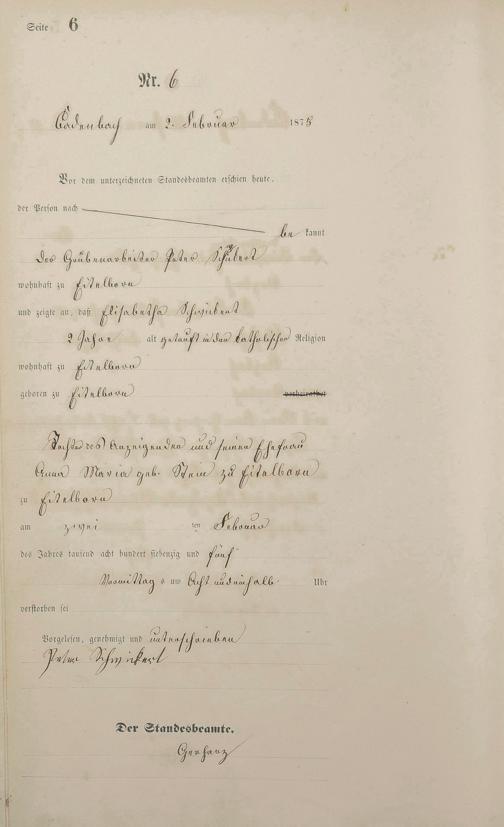 Seite 6
Nr. 6
Cadenbach am 2. Februar 1875
Vor dem unterzeichneten Standesbeamten erschien heute,
der Person nach
be kannt
der Grubenarbeiter Peter
wohnhaft zu Eitelborn
und zeigte an, daß Elisabetha Schwickert
2 Jahre alt getauft in der katholischen Religion
wohnhaft zu Eitelborn
geboren zu Eitelborn verheirathet
Tochter des Anzeigenden und seiner Ehefrau
Anna Maria geb. Stein zu Eitelborn
zu Eitelborn
am zwei ten Februar
des Jahres tausend acht hundert siebenzig und fünf
Vormittag s um acht Uhr
verstorben sei
Vorgelesen, genehmigt und unterschrieben
Peter Schwickert
Der Standesbeamte.
Gerharz